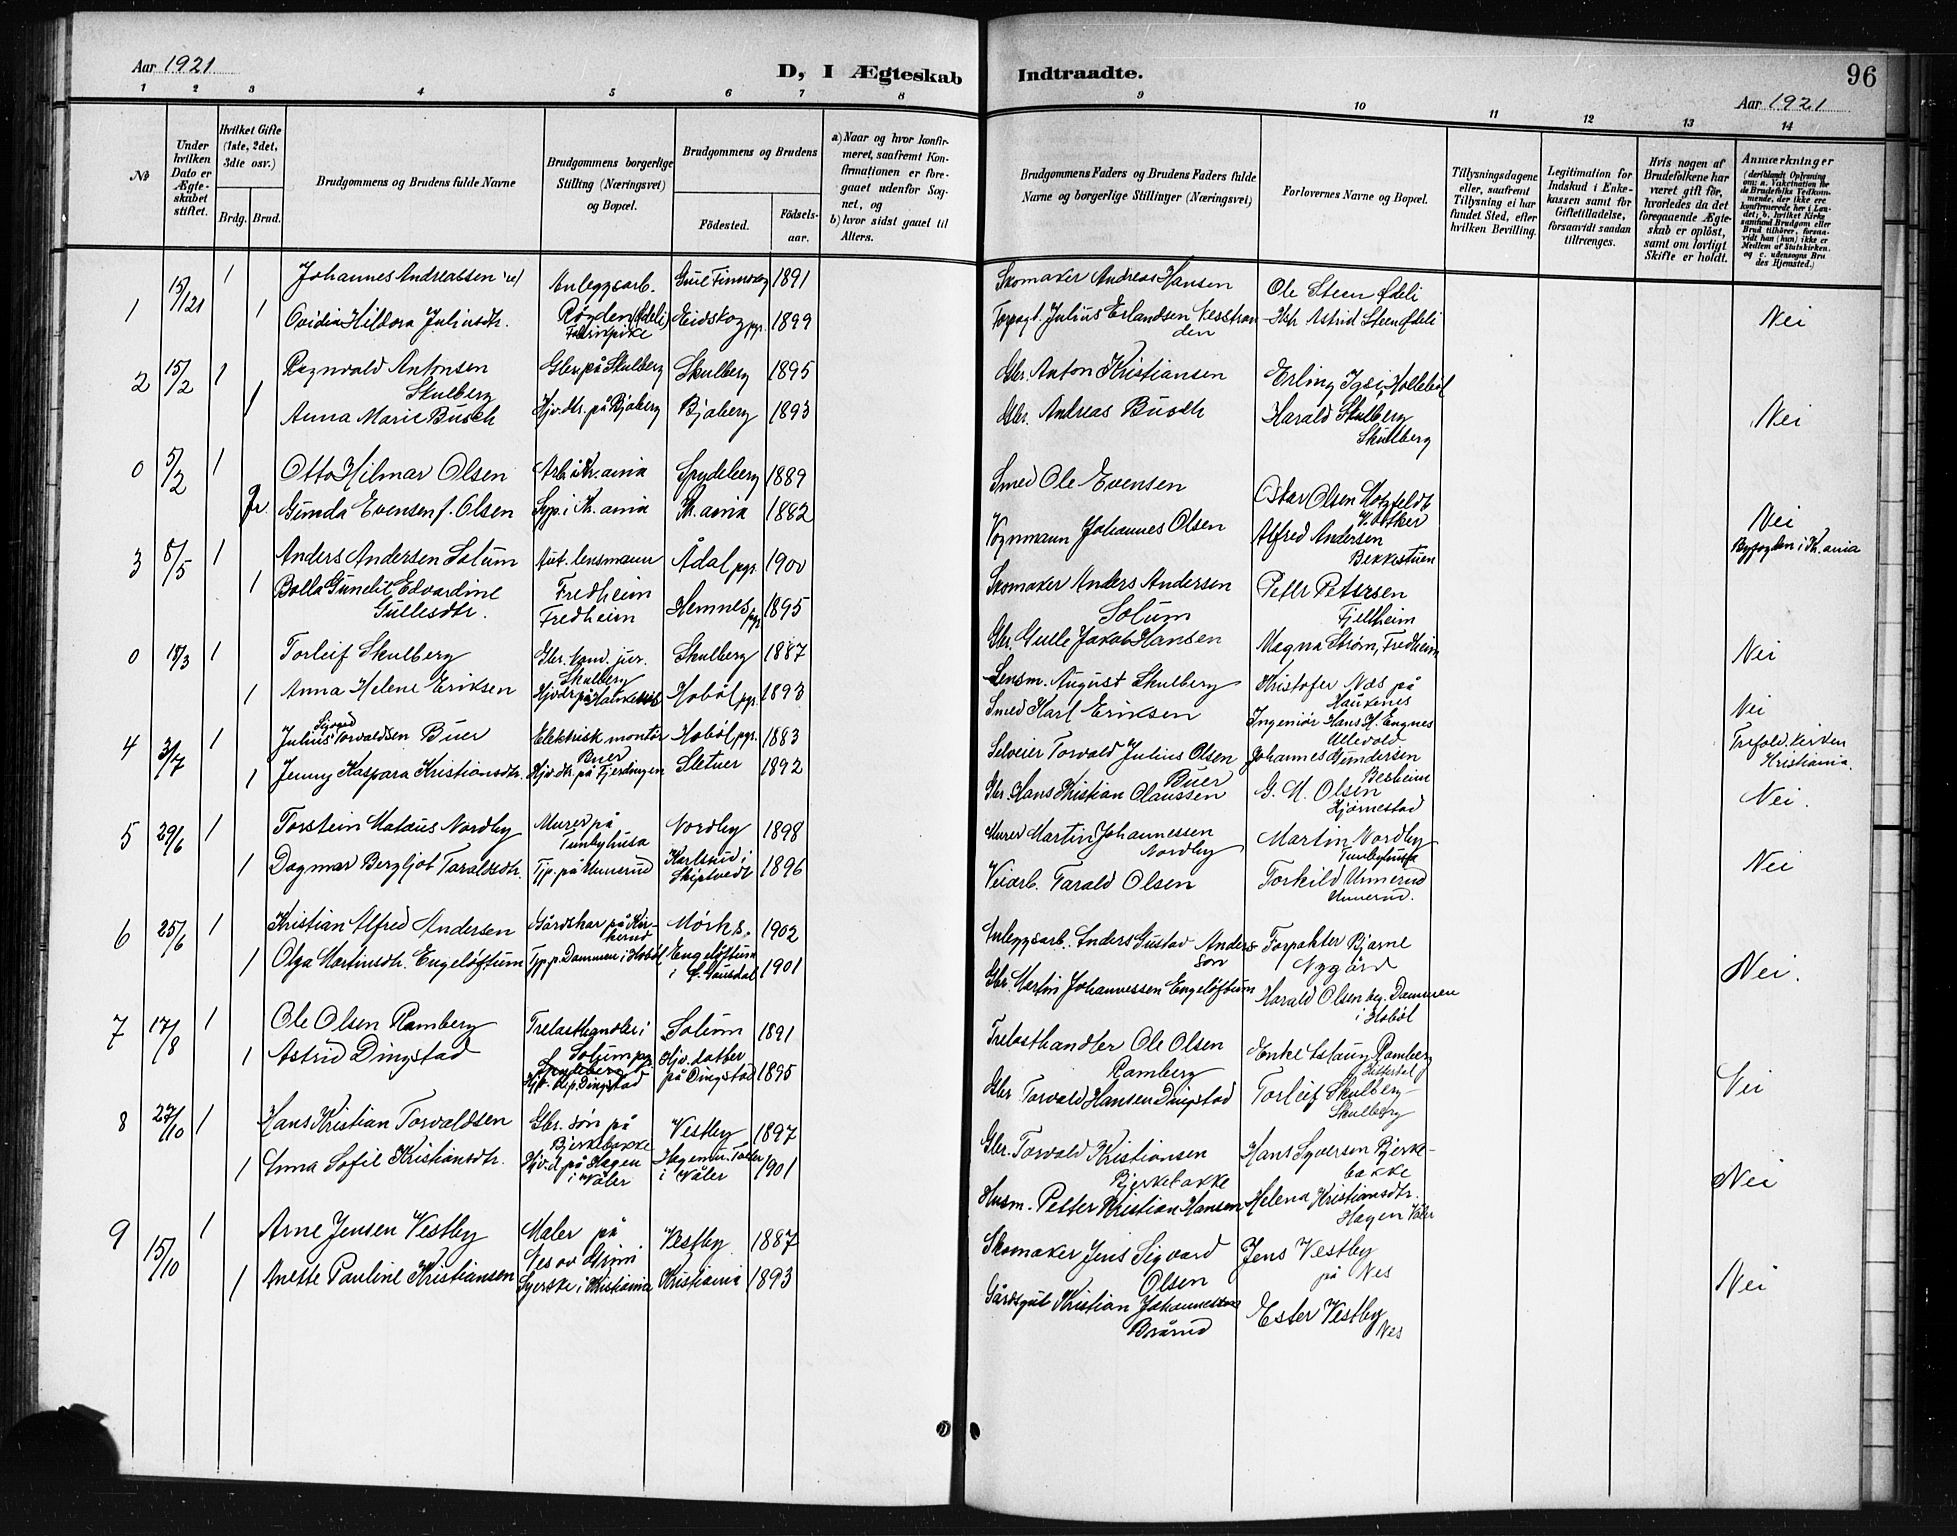 Aar 1921
D, I Ægteskab Indtraadte.
96
Aar 1921
1 2 3 4 5 6 7 8 9 10 11 12 13 14
No
Under hvilken Dato er Ægteskabet stiftet.
Hvilket Gifte (1ste, 2det, 3die osv.)
Brdg. Brud.
Brudgommens og Brudens fulde Navne
Brudgommens borgerlige Stilling (Næringsvei) og Bopæl.
Brudgommens og Brudens
Fødested.
Fødselsaar.
a) Naar og hvor konfirmeret, saafremt Konfirmationen er foregaaet udenfor Sognet, og
b) hvor sidst gaaet til Alters.
Brudgommens Faders og Brudens Faders fulde Navne og borgerlige Stillinger (Næringsvei)
Forlovernes Navne og Bopæl.
Tillysningsdagene eller, saafremt Tillysning ei har fundet Sted, efter hvilken Bevilling.
Legitimation for Indskud i Enkekassen samt for Giftetilladelse, forsaavidt saadan tiltrænges.
Hvis nogen af Brudefolkene har været gift før, hvorledes da det foregaaende Ægteskab er opløst, samt om lovligt Skifte er holdt.
Anmærkninger (deriblandt Oplysning om: a. Vakcination for de Brudefolks Vedkommende, der ikke ere konfirmerede her i Landet; b. hvilket Kirkesamfund Brudgom eller Brud tilhører, forsaavidt han (hun) ikke er Medlem af Statskirken. og c. udensogns Brudes Hjemsted.)
1 15/1 21 1 Johannes Andreassen Anleggsarb. 1891 Skomaker Andreas Hansen Ole Steen Ødeli
1 Ovidia Hildora Juliusdtr. Røgden (Ødeli) Fabrikpike Eidskog pg. 1899 Forpagt. Julius Erlandsen Nesstranden Astrid Steen Ødeli Nei
2 15/2 1 Ragnvald Antonsen Skulberg Gbr. på Skulberg Skulberg 1895 Gbr. Anton Kristiansen Erling
1 Anna Marie Busch Hjv.dtr. på Bjaberg Bjaberg 1893 Gbr. Andreas Busch Harald Skulberg Skulberg Nei
0 5/2 1 Otto Hilmar Olsen Arb. i Kr.ania Spydeberg 1889 Smed Ole Evensen Oskar Olsen
Gunda Evensen f. Olsen Syp. i Kr.ania Kr.ania 1882 Vognmann Johannes Olsen Alfred Andersen Bekkestuen Nei Byfogden i Kr.ania
3 8/5 1 Anders Andersen Solum Aut. lensmann Fredheim Ådal pgr. 1900 Skomaker Anders Andersen Solum Peter Petersen Fjellheim
1 Bolla Gunelie Edvardine Gullesdtr. Fredheim Hemnes pg. 1895 Gbr. Gulle Jakob Hansen Magna Strøm, Fredheim Nei
0 18/3 1 Torleif Skulberg Gbr. kand. jur. Skulberg Skulberg 1887 Lensm. August Skulberg Kristofer Næs på Haukenes
1 Anna Helene Eriksen Hobøl pgr. 1893 Smed Karl Eriksen Ingeniør Hans H. Engnes Ullevold Nei Trefold.kirken Kristiania.
4 3/7 1 Julius Sigvard Torvaldsen Buer Elektrisk montør Buer Hobøl pgr. 1883 Selveier Torvald Julius Olsen Buer Johannes Gundersen
1 Jenny Kaspara Kristiansdtr. Hjv.dtr. på Fjerdingen Sletner 1892 Gbr. Hans Kristian Olaussen G. M. Olsen Hjørnestad Nei.
5 29/6 1 Torstein Mataus Nordby Murer på Tunbyhusa Nordby 1898 Murer Martin Johannessen Nordby Martin Nordby Tunbyhusa
1 Dagmar Bergljot Taraldsdtr. Tjp. på Unnerud Karlsrud i Skiptvedt 1896 Veiarb. Tarald Olsen Torkild Unnerud Unnerud. Nei
6 25/6 1 Kristian Alfred Andersen Gårdskar på Kirkerud Mørk s. 1902 Anleggsarb. Anders Gustav Andersson Forpakter Bjarne Nygård
1 Olga Martinsdtr. Engeløftum Tjp. p. Dammen i Hobøl Engeløftum i Ø. Gausdal 1901 Gbr. Martin Johannessen Engeløftum Harald Olsen Dammen i Hobøl Nei.
7 17/8 1 Ole Olsen Ramberg Trelasthandler i Solum pg. Solum 1891 Trelasthandler Ole Olsen Ramberg Enke Ramberg
1 Astrid Dingstad Spydeberg Hjv. datter på Dingstad 1895 Gbr. Torvald Hansen Dingstad Torleif Skulberg Skulberg Nei
8 27/10 1 Hans Kristian Torvaldsen Gbr. søn på Bjerkebakke Vestby 1897 Gbr. Torvald Kristiansen Bjerkebakke Hans Syversen Bjerkebakke
1 Anna Sofie Kristiansdtr. Hjv.d. på Hagen i Våler i Våler 1901 Husm. Petter Kristian Hansen Helena Kristiansdtr. Hagen Våler Nei
9 15/10 1 Arne Jensen Vestby Maler på Nes Vestby 1887 Skomaker Jens Sigvard Olsen Jens Vestby på Nes
1 Anette Pauline Kristiansen Syerske i Kristiania Kristiania 1893 Gårdsgut Kristian Johannessen Brårud Ester Vestby Nes Nei